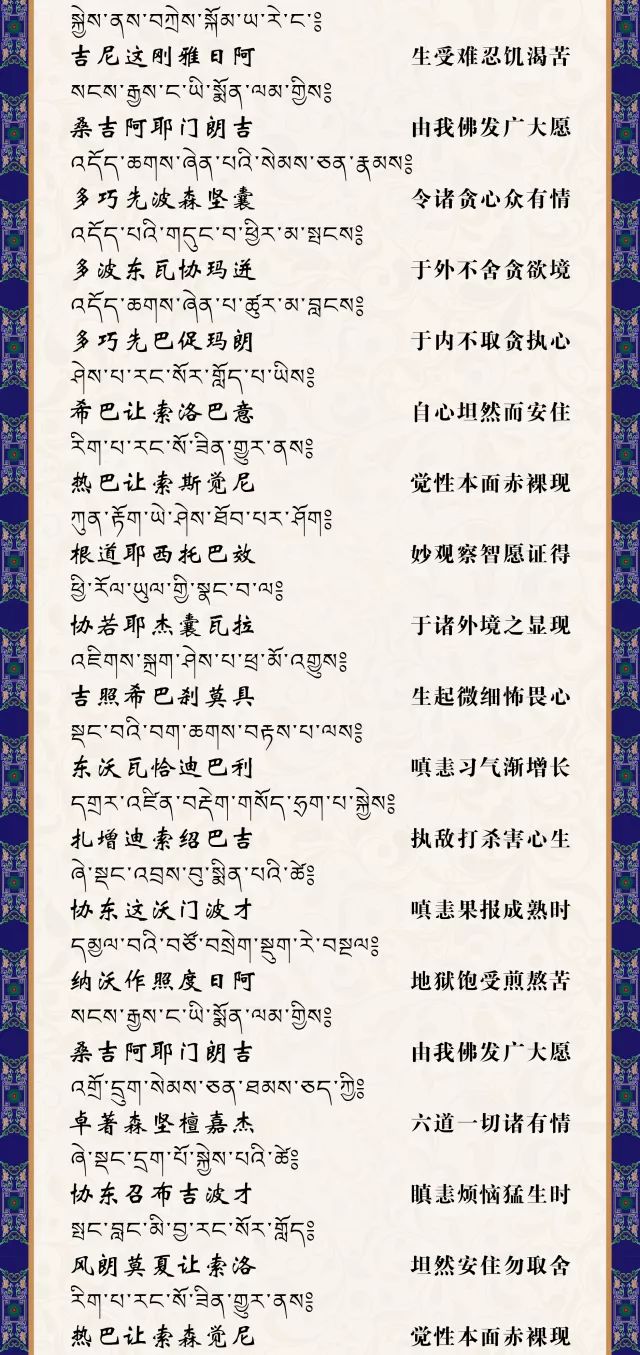 སྐྱེས་ནས་བཀྲེས་སྐོམ་ཡ་རེ་ང་༔
吉尼这刚雅日阿 生受难忍饥渴苦
སངས་རྒྱས་ང་ཡི་སྨོན་ལམ་གྱིས༔
桑吉阿耶门朗吉 由我佛发广大愿
འདོད་ཆགས་ཞེན་པའི་སེམས་ཅན་རྣམས༔
多巧先波森坚囊 令诸贪心众有情
འདོད་པའི་གདུང་བ་ཕྱིར་མ་སྤངས༔
多波东瓦协玛迸 于外不舍贪欲境
འདོད་ཆགས་ཞེན་པ་ཚུར་མ་བླངས༔
多巧先巴促玛朗 于内不取贪执心
ཤེས་པ་རང་སོར་གློད་པ་ཡིས༔
希巴让索洛巴意 自心坦然而安住
རིག་པ་རང་སོ་ཟིན་གྱུར་ནས༔
热巴让索斯觉尼 觉性本面赤裸现
ཀུན་རྟོག་ཡེ་ཤེས་ཐོབ་པར་ཤོག༔
根道耶西托巴效 妙观察智愿证得
ཕྱི་རོལ་ཡུལ་གྱི་སྣང་བ་ལ༔
协若耶杰囊瓦拉 于诸外境之显现
འཇིགས་སྐྲག་ཤེས་པ་ཕྲ་མོ་འགྱུས༔
吉照希巴刹莫具 生起微细怖畏心
སྡང་བའི་བག་ཆགས་བརྟས་པ་ལས༔
东沃瓦恰迪巴利 嗔恚习气渐增长
དགྲར་འཛིན་བརྡེག་གསོད་ཧྲག་པ་སྐྱེས༔
扎增迪索绍巴吉 执敌打杀害心生
ཞེ་སྡང་འབྲས་བུ་སྨིན་པའི་ཚེ༔
协东这沃门波才 嗔恚果报成熟时
དམྱལ་བའི་བཙོ་བསྲེག་སྡུག་རེ་བསྔལ༔
纳沃作照度日阿 地狱饱受煎熬苦
སངས་རྒྱས་ང་ཡི་སྨོན་ལམ་གྱིས༔
桑吉阿耶门朗吉 由我佛发广大愿
འགྲོ་དྲུག་སེམས་ཅན་ཐམས་ཅད་ཀྱི༔
卓著森坚檀嘉杰 六道一切诸有情
ཞེ་སྡང་དྲག་པོ་སྐྱེས་པའི་ཚེ༔
协东召布吉波才 瞋恚烦恼猛生时
སྤང་བླང་མི་བྱ་རང་སོར་གློད༔
风朗莫夏让索洛 坦然安住勿取舍
རིག་པ་རང་སོ་ཟིན་གྱུར་ནས༔
热巴让索森觉尼 觉性本面赤裸现